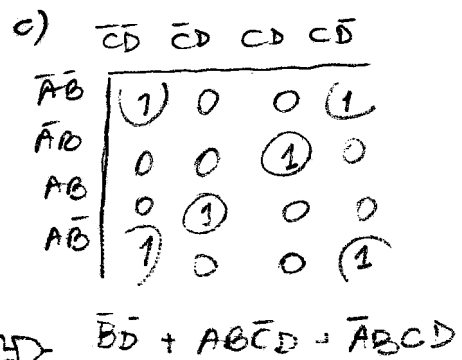 c) C̄D̄ C̄D CD CD̄
ĀB̄ 1 0 0 1
ĀB 0 0 1 0
AB 0 1 0 0
AB̄ 1 0 0 1
B̄D̄ + ABC̄D + ĀBCD